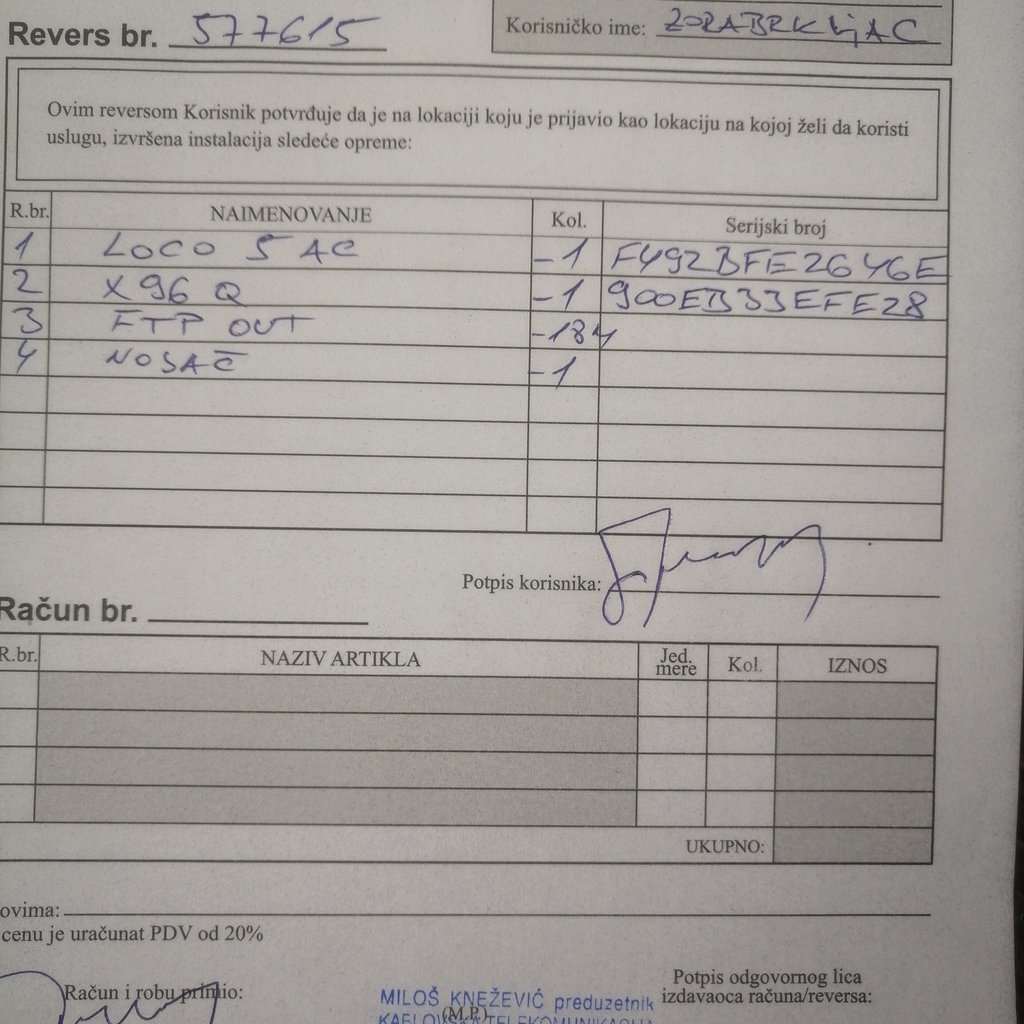 Revers br. 577615
Korisničko ime: ZORABRKljAC
Ovim reversom Korisnik potvrđuje da je na lokaciji koju je prijavio kao lokaciju na kojoj želi da koristi
uslugu, izvršena instalacija sledeće opreme:
R.br. NAIMENOVANJE Kol. Serijski broj
1 LOCO 5 AC -1 F492BFE2646E
2 X96 Q -1 900EB33EFE28
3 FTP OUT -184
4 NOSAČ -1
Potpis korisnika:
Račun br.
R.br. NAZIV ARTIKLA Jed. mere Kol. IZNOS
UKUPNO:
ovima:
cenu je uračunat PDV od 20%
Račun i robu primio:
Potpis odgovornog lica
izdavaoca računa/reversa:
MILOŠ KNEŽEVIĆ preduzetnik
(M.P.)
KABLOVSKA TELEKOMUNIKACIJA